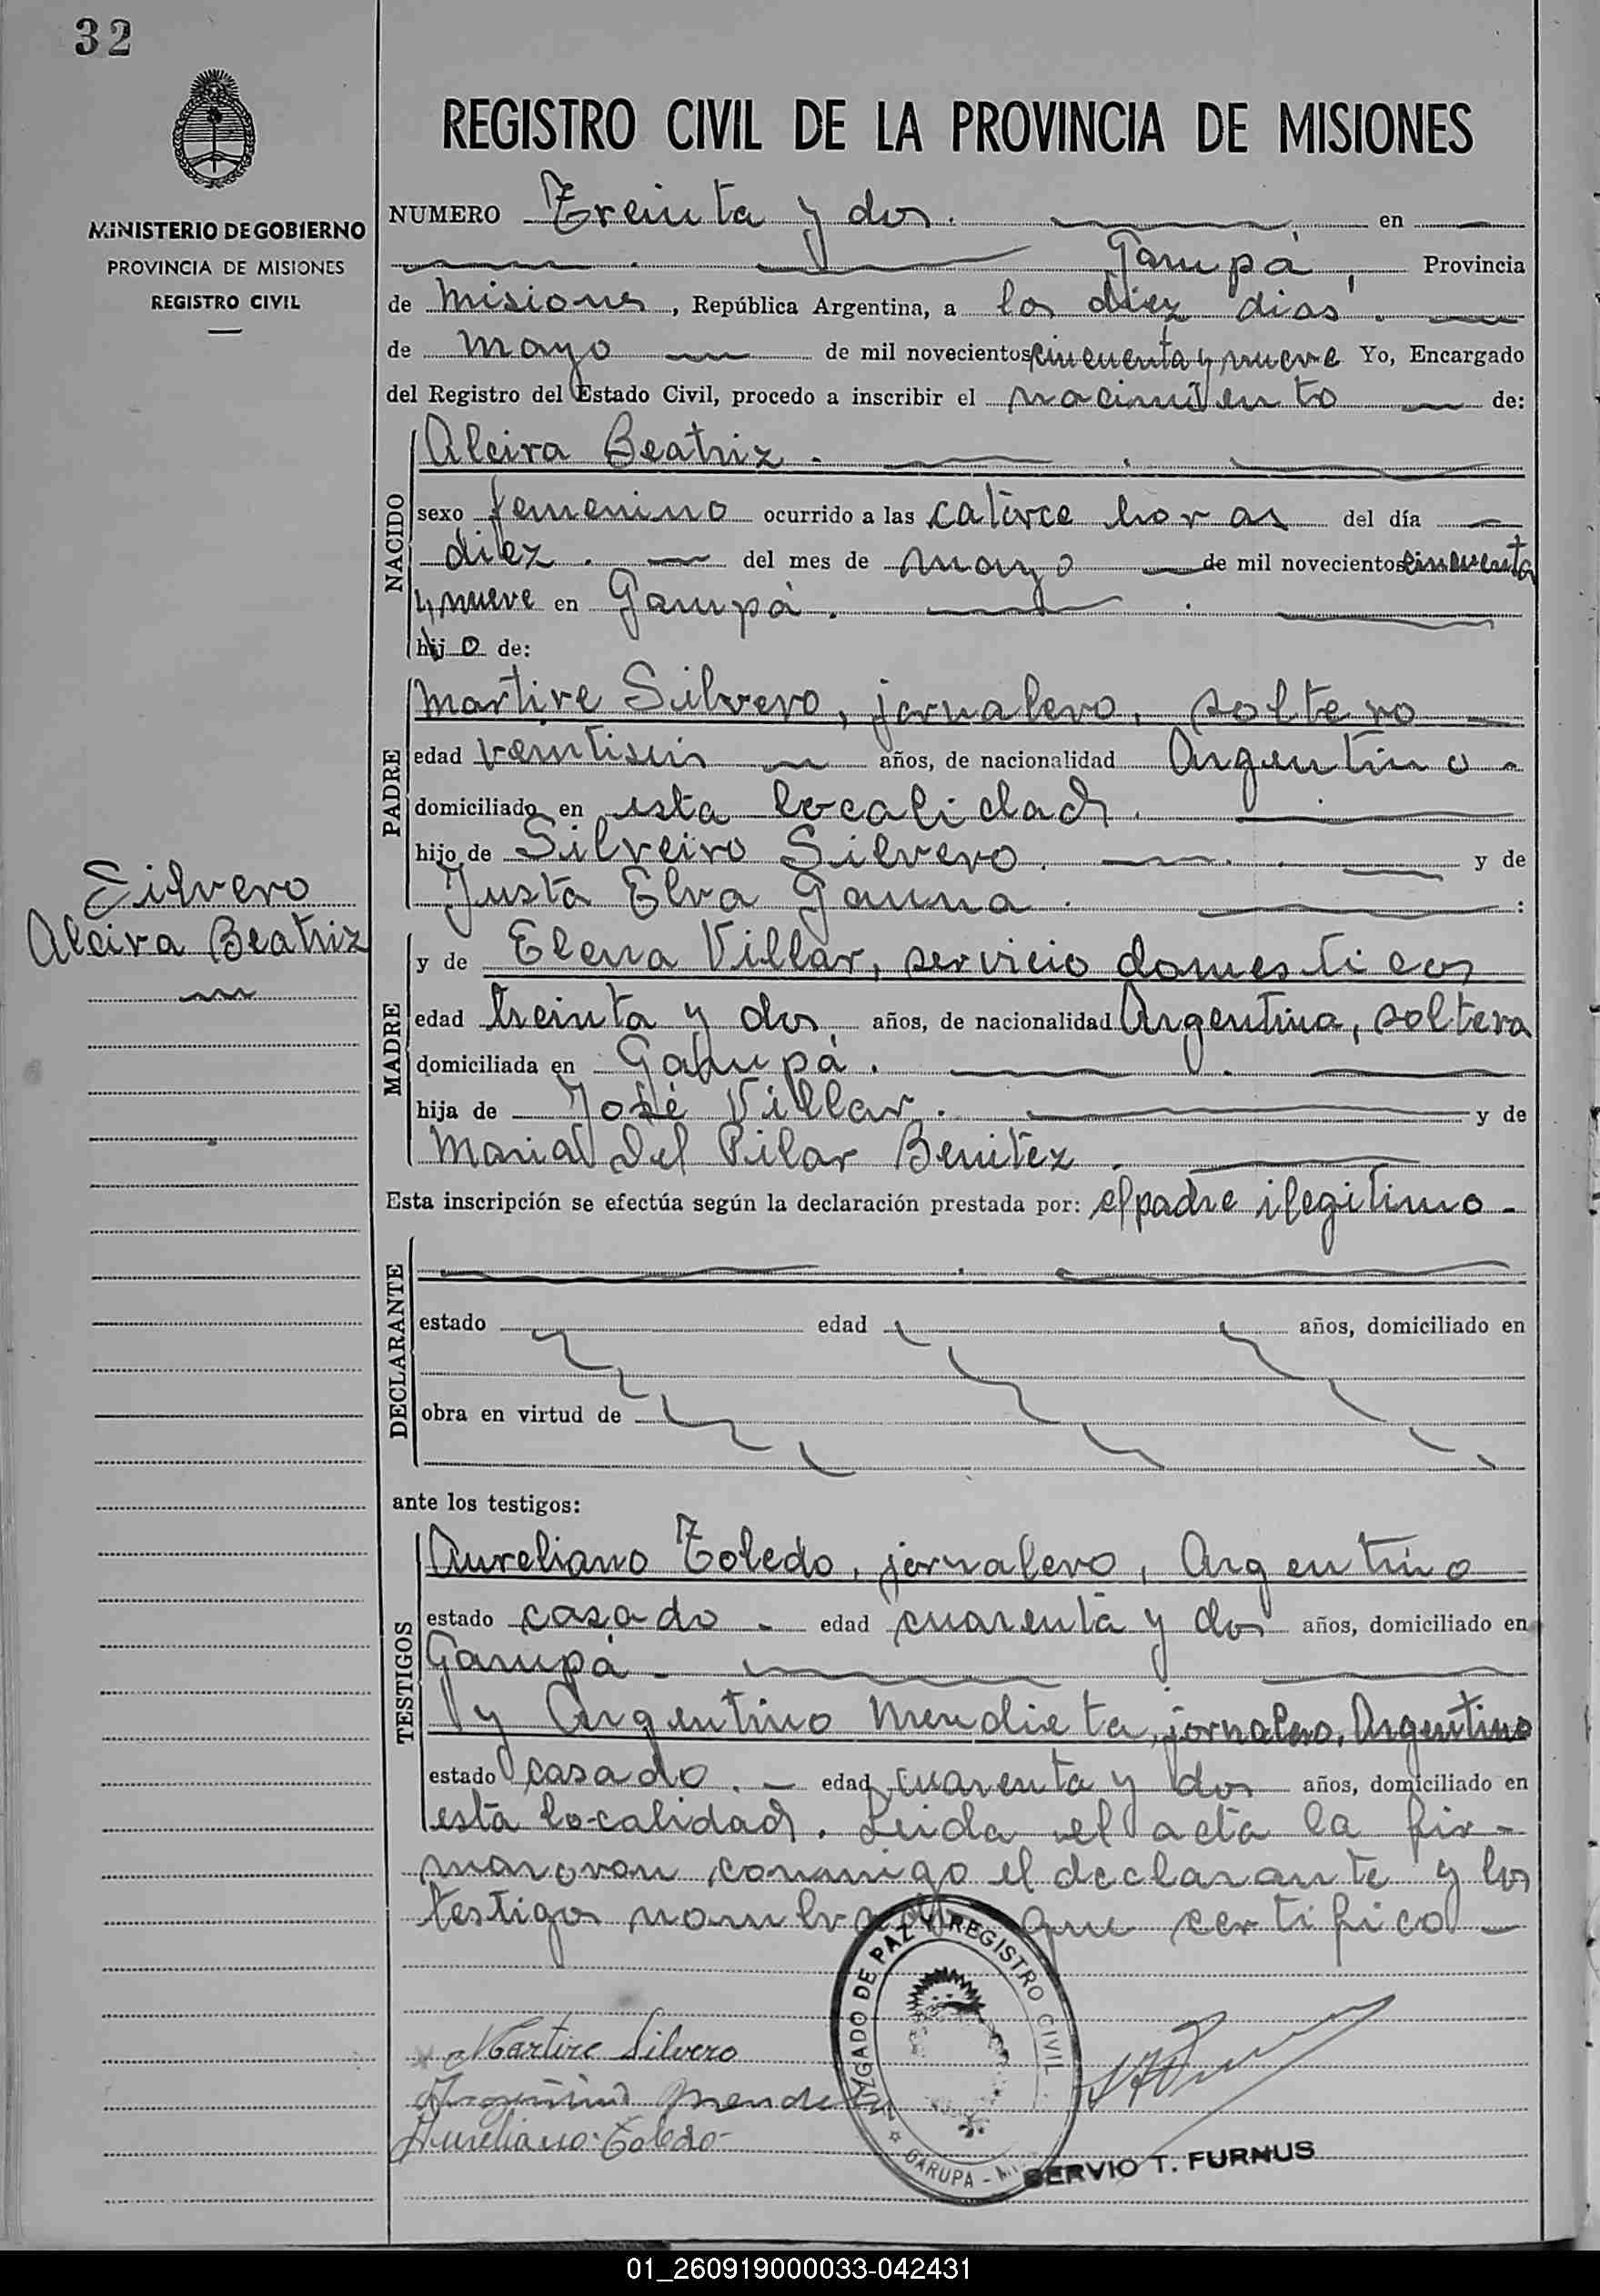 32
REGISTRO CIVIL DE LA PROVINCIA DE MISIONES
MINISTERIO DE GOBIERNO
PROVINCIA DE MISIONES
REGISTRO CIVIL
NUMERO Treinta y dos. en
Garupá, Provincia
de Misiones, República Argentina, a los diez dias.
de mayo de mil novecientos cincuenta y nueve Yo, Encargado
del Registro del Estado Civil, procedo a inscribir el nacimiento de:
NACIDO
Alcira Beatriz.
sexo femenino ocurrido a las catorce horas del día
diez. del mes de mayo de mil novecientos cincuenta
y nueve en Garupá.
hijo de:
PADRE
Martire Silvero, jornalero, soltero
edad veintiseis años, de nacionalidad Argentino
domiciliado en esta localidad.
hijo de Silveiro Silvero. y de
Justa Elva Gauna. :
Silvero
Alcira Beatriz
MADRE
y de Elena Villar, servicio domesticos
edad treinta y dos años, de nacionalidad Argentina, soltera
domiciliada en Garupá.
hija de José Villar. y de
Maria Del Pilar Benitez.
Esta inscripción se efectúa según la declaración prestada por: el padre ilegitimo.
DECLARANTE
estado edad años, domiciliado en
obra en virtud de
ante los testigos:
TESTIGOS
Aureliano Toledo, jornalero, Argentino
estado casado edad cuarenta y dos años, domiciliado en
Garupá
y Argentino Mendieta, jornalero, Argentino
estado casado. edad cuarenta y dos años, domiciliado en
esta localidad. Leida el acta la fir-
maroron conmigo el declarante y los
testigos nombrados que certifico
Martire Silvero
Argentino Mendieta
Aureliano Toledo
JUZGADO DE PAZ Y REGISTRO CIVIL
GARUPA
SERVIO T. FURNUS
01_260919000033-042431